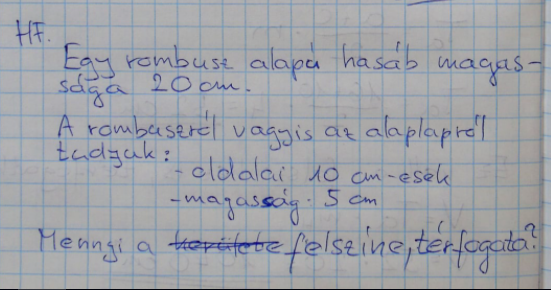 HF.
Egy rombusz alapú hasáb magas-
sága 20 cm.
A rombuszról vagyis az alaplapról
tudjuk:
- oldalai 10 cm-esek
- magasság: 5 cm
Mennyi a kerülete felszíne, térfogata?